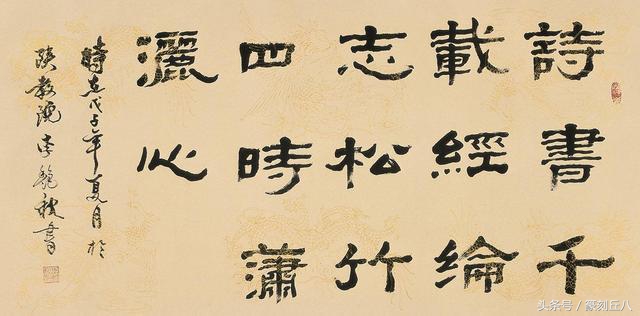 詩書千
載經綸
志松竹
四時瀟
灑心
時在戊子年夏月於
陝教院李艷秋書
头条号/篆刻丘八